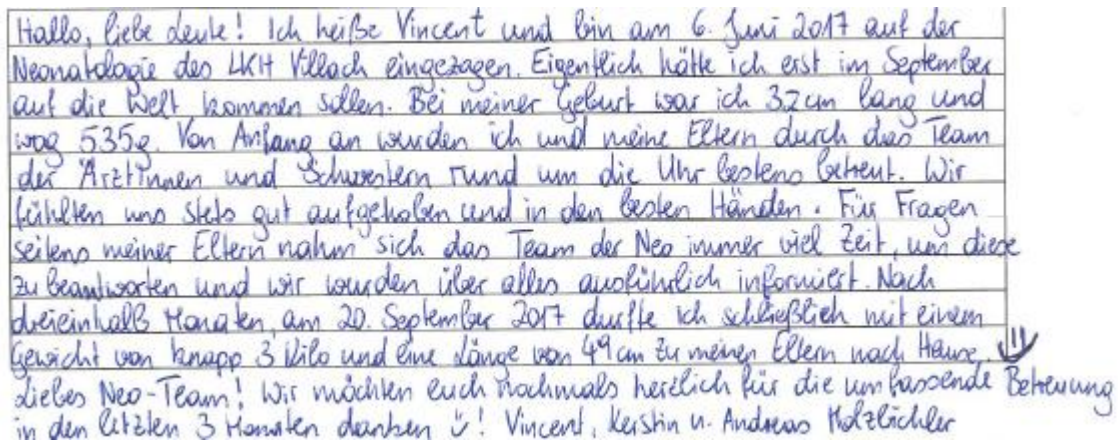 Hallo, liebe Leute! Ich heiße Vincent und bin am 6. Juni 2017 auf der
Neonatologie des LKH Villach eingezogen. Eigentlich hätte ich erst im September
auf die Welt kommen sollen. Bei meiner Geburt war ich 32 cm lang und
wog 535g. Von Anfang an wurden ich und meine Eltern durch das Team
der ÄrztInnen und Schwestern rund um die Uhr bestens betreut. Wir
fühlten uns stets gut aufgehoben und in den besten Händen. Für Fragen
seitens meiner Eltern nahm sich das Team der Neo immer viel Zeit, um diese
zu beantworten und wir wurden über alles ausführlich informiert. Nach
dreieinhalb Monaten, am 20. September 2017 durfte ich schließlich mit einem
Gewicht von knapp 3 Kilo und eine Länge von 49 cm zu meinen Eltern nach Hause.
Liebes Neo-Team! Wir möchten euch nochmals herzlich für die umfassende Betreuung
in den letzten 3 Monaten danken! Vincent, Kerstin u. Andreas